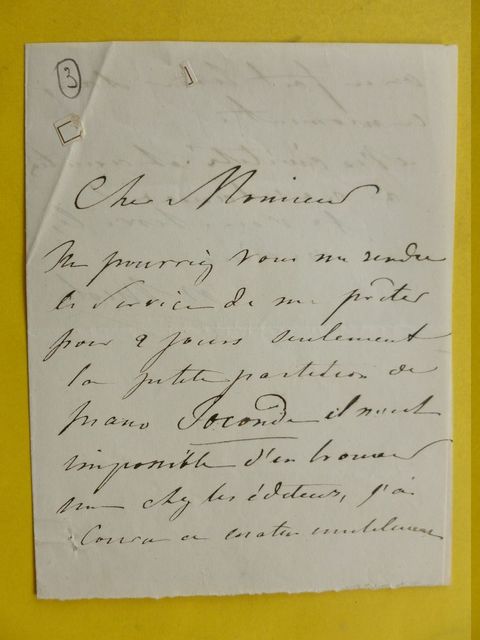 3
Cher Monsieur
Ne pourriez vous me rendre
le Service de me prêter
pour 2 jours seulement
la petite partition de
piano Joconde il m'est
impossible d'en trouver
une chez les éditeurs, j'ai
Couru ce matin inutilement